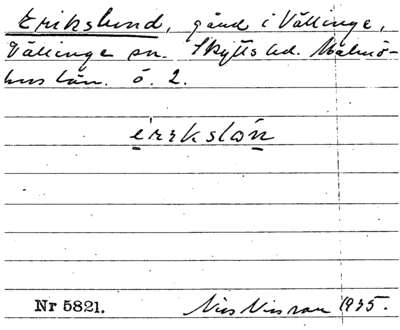 Erikslund, gård i Vällinge,
Vällinge sn. Skytts hd. Malmö-
hus län. ö. 2.
erikslón
Nr 5821. Nils Nilsson 1935.